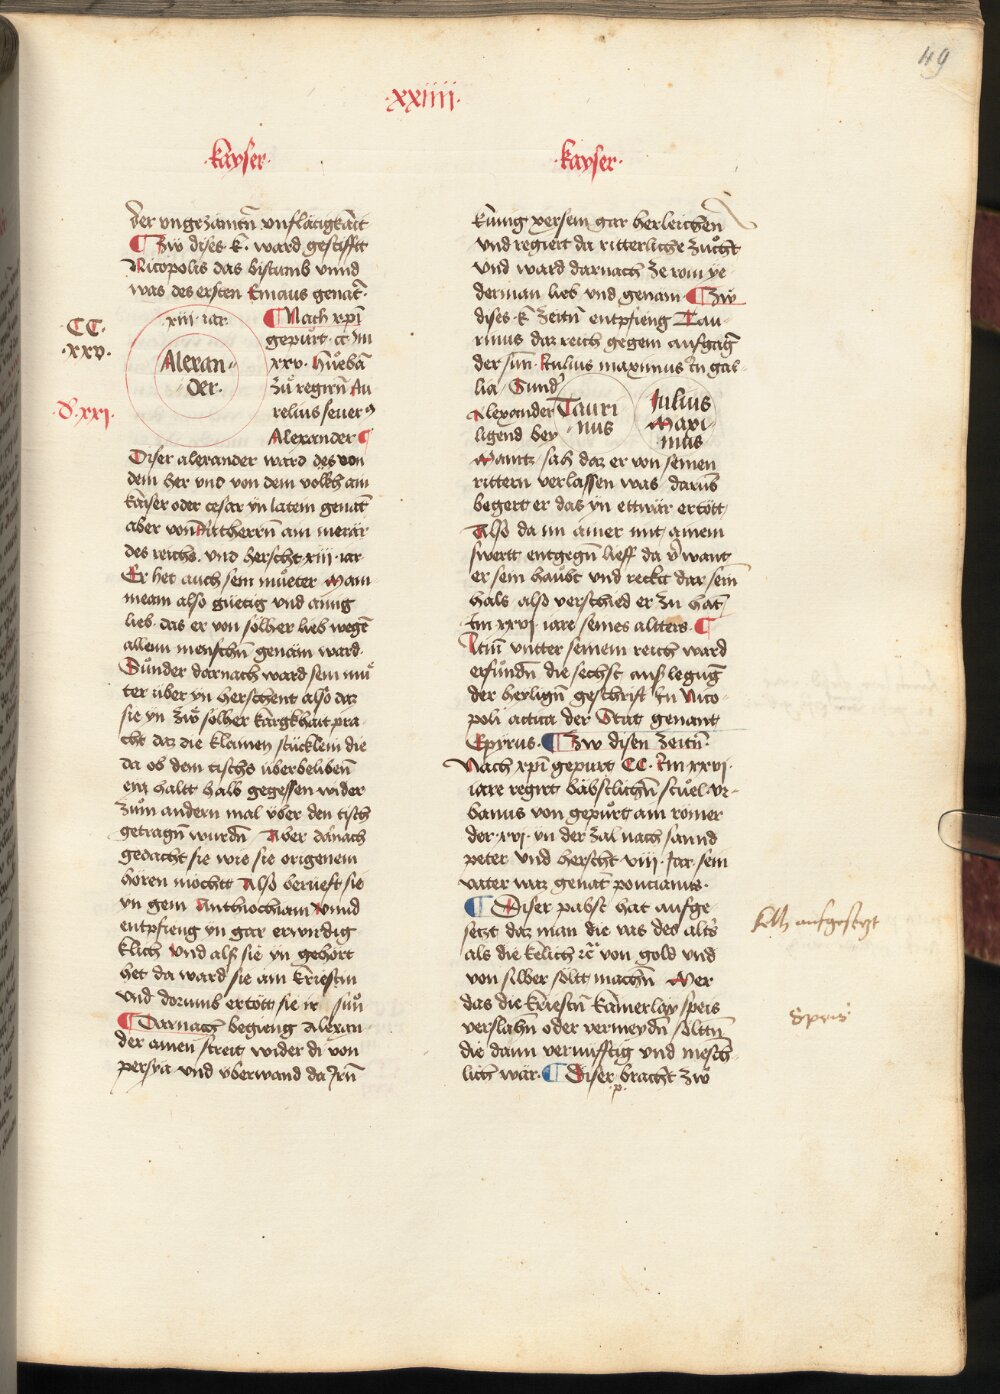 49
·xxiiii·
·kayser·
der vngezämtn̄ vnflätigkait
¶ Zẘ dises k· ward gestifft
Nicopolis das bistumb vnnd
was des ersten Emaus genāt·
·CC·
·xxv·
·xiii· iar
Alexan-
der·
¶ Nach xp̄i
gepurt· cc· Im
xxv· hůebā
zů regirn̄ Au
relius seuer9
Alexander ¶
·d·xxi·
Diser alexander ward des von
dem her vnd von dem volkh am
kaiser oder cesar yn latein genāt
aber von Ratherrn̄ am merär
des reichs· vnd herscht xiii· iar·
Er het auch sein můeter Mam
meam also güetig vnd ainig
lieb· das er von solher lieb wegē
allem menschn̄ genäm ward·
Sunder darnach ward sein mů
ter über yn herschent also daz
sie yn zẘ solher kargkhait pra
cht daz die klainen stücklein die
da ob dem tischs überbelibenn̄
ein haltt halb gegessen wider
zům andern mal über den tisch
getragn̄ wurdn̄ Aber dānach
gedacht sie wie sie origenem
hören möchtt Also berüeft sie
yn gein Anthiochiam Vnnd
entpfieng yn gar erwirdig
klich Vnd alß sie yn gehört
het da ward sie am kriestin
Vnd dorumb ertött sie ir sun
¶ Darnach begieng Alexan-
der ainen streit wider di von
persya vnd vberwand da Irn̄
·kayser·
künig xersem gar herleichen
vnd regiert da ritterliche zucht
Vnd ward darnach ze rom ye
derman lieb vnd genam· ¶ Zẘ
dises· k· zeitn̄ entpfieng Tau-
rinus daz reich gegem aufgāg
der sun· Iulius maximus In gal-
lia· Sund'
Alexander
ligend bey
Tauri
nus
Iulius
Maxi-
mus
Maintz· sah daz er von seinen
rittern verlassen was· darūb
begert er das yn ettwär ertött
Also da im ainer mit ainem
swertt entgegn̄ lieff da v'want
er sein haubt vnd reckt dar sein
hals also verschied er zu hāt
Im xxvj· iare seines altters· ¶
Itm̄ vntter seinem reich ward
erfundn̄ die sechst auß legūg
der heylign̄ geschrift In Nico-
poli actica der Stat genant
Epyrus· ¶ Zw disen zeitn̄·
Nach xp̄i gepurt CC· Im xxvj·
iare regirt bäbstlichn̄ stůel vr-
banus von gepůrt am römer
der· xvj· yn der zal nach sannd
peter vnd herscht viii· Jar sein
vater waz genāt poncianus·
¶ Diser pabst hat aufge
setzt daz man die vas des altr̄s
als die kelich ꝛc̄ von gold vnd
von silber soltt machn̄ Mer
das die kriestn̄ kainerlay speis
verslahn̄ oder vermeydn̄ solttn̄
die dann vernüfftig vnd mēsch-
lich wär· ¶ Diser bracht zẘ
kelh aufgesetzt
Speis